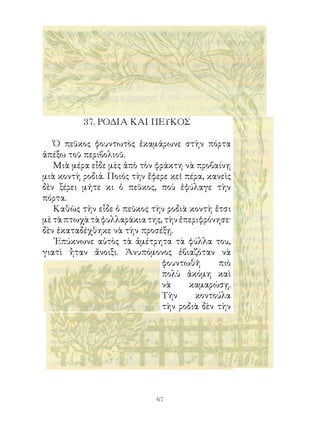 37. ΡΟΔΙΑ ΚΑΙ ΠΕΥΚΟΣ
Ὁ πεῦκος φουντωτὸς ἐκαμάρωνε στὴν πόρτα
ἀπέξω τοῦ περιβολιοῦ.
Μιὰ μέρα εἶδε μὲς ἀπὸ τὸν φράκτη νὰ προβαίνῃ
μιὰ κοντὴ ροδιά. Ποιὸς τὴν ἔφερε κεῖ πέρα, κανεὶς
δὲν ξέρει μήτε κι ὁ πεῦκος, ποὺ ἐφύλαγε τὴν
πόρτα.
Καθὼς τὴν εἶδε ὁ πεῦκος τὴν ροδιὰ κοντὴ ἔτσι
μὲ τὰ πτωχὰ τὰ φυλλαράκια της, τὴν ἐπεριφρόνησε·
δὲν ἐκαταδέχθηκε νὰ τὴν προσέξῃ.
Ἐπύκνωνε αὐτὸς τὰ ἀμέτρητα τὰ φύλλα του,
γιατὶ ἦταν ἄνοιξι. Ἀνυπόμονος ἐβιαζόταν νὰ
φουντωθῇ πιὸ
πολὺ ἀκόμη καὶ
νὰ καμαρώσῃ.
Τὴν κοντούλα
τὴν ροδιὰ δὲν τὴν
67